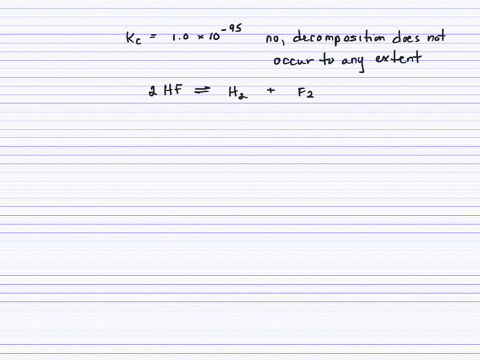 Kc = 1.0 × 10⁻⁹⁵ no, decomposition does not
occur to any extent
2 HF ⇌ H₂ + F₂